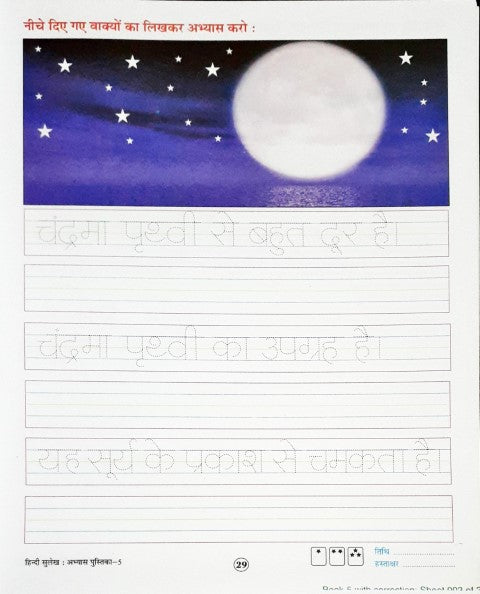 नीचे दिए गए वाक्यों का लिखकर अभ्यास करो :
चंद्रमा पृथ्वी से बहुत दूर है।
चंद्रमा पृथ्वी का उपग्रह है।
यह सूर्य के प्रकाश से चमकता है।
हिन्दी सुलेख : अभ्यास पुस्तिका–5
29
तिथि
हस्ताक्षर
Book 5 with correction: Sheet